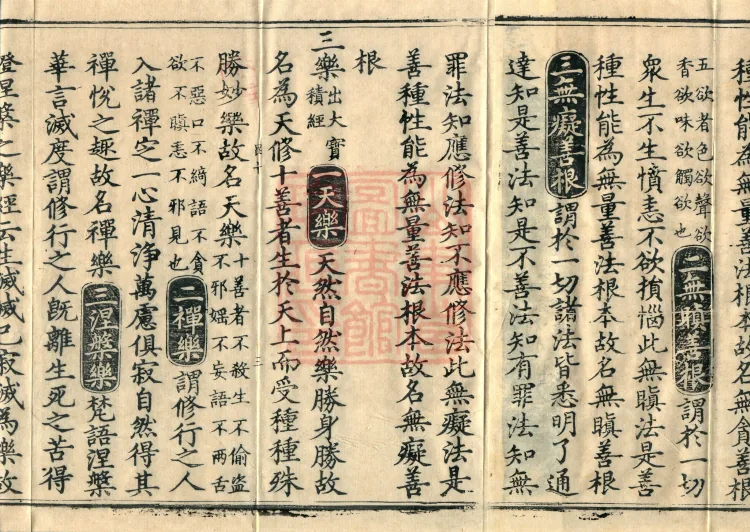 種性能為無量善法根本故名無貪善根
五欲者色欲聲欲
香欲味欲觸欲也
二無瞋善根謂於一切
眾生不生憤恚不欲損惱此無瞋法是善
種性能為無量善法根本故名無瞋善根
三無癡善根謂於一切諸法皆悉明了通
達知是善法知是不善法知有罪法知無
罪法知應修法知不應修法此無癡法是
善種性能為無量善法根本故名無癡善
根
三樂
出大寶
積經
一天樂天然自然樂勝身勝故
名為天修十善者生於天上而受種種殊
勝妙樂故名天樂
十善者不殺生不偷盜
不邪婬不妄語不兩舌
不惡口不綺語不貪
欲不瞋恚不邪見也
二禪樂謂修行之人
入諸禪定一心清淨萬慮俱寂自然得其
禪悅之趣故名禪樂三涅槃樂梵語涅槃
華言滅度謂修行之人既離生死之苦得
證涅槃之樂經云生滅滅已寂滅為樂故